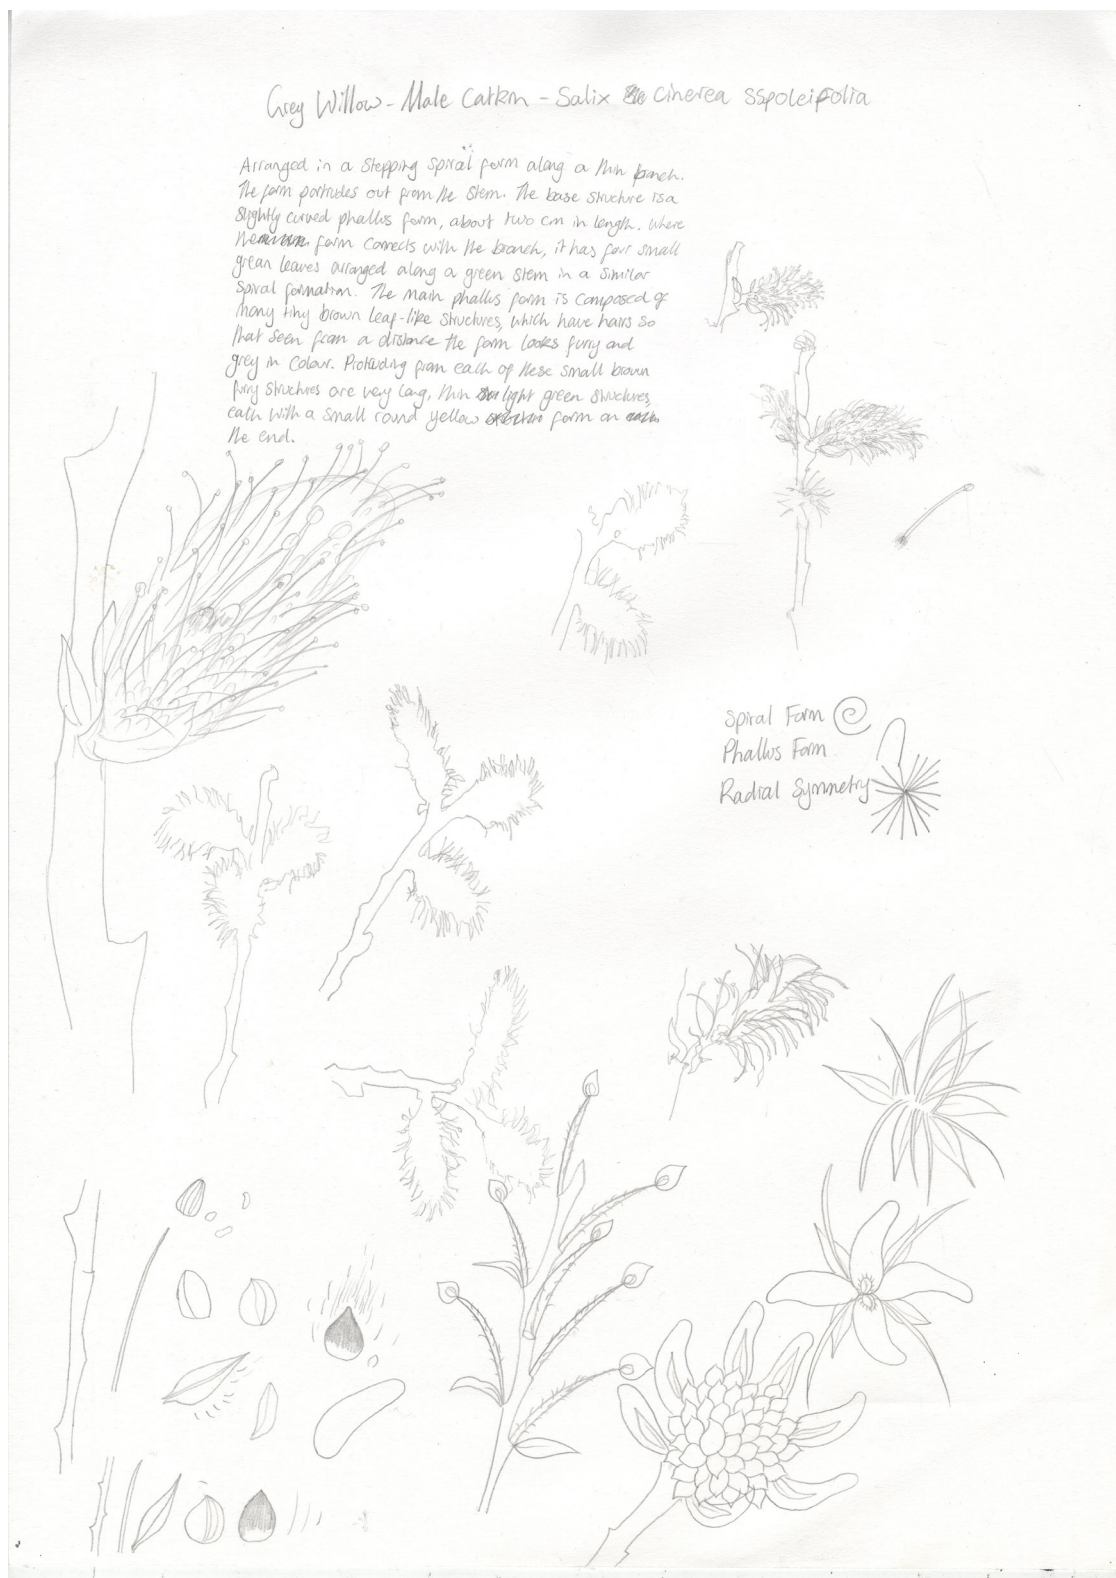 Grey Willow - Male Catkin - Salix cinerea sspoleifolia
Arranged in a stepping spiral form along a thin branch.
The form portrudes out from the stem. The base structure is a
slightly curved phallus form, about two cm in length. Where
the form connects with the branch, it has four small
green leaves arranged along a green stem in a similar
spiral formation. The main phallus form is composed of
many tiny brown leaf-like structures, which have hairs so
that seen from a distance the form looks furry and
grey in colour. Protruding from each of these small brown
furry structures are very long, thin light green structures,
each with a small round yellow form on
the end.
Spiral Form
Phallus Form
Radial Symmetry